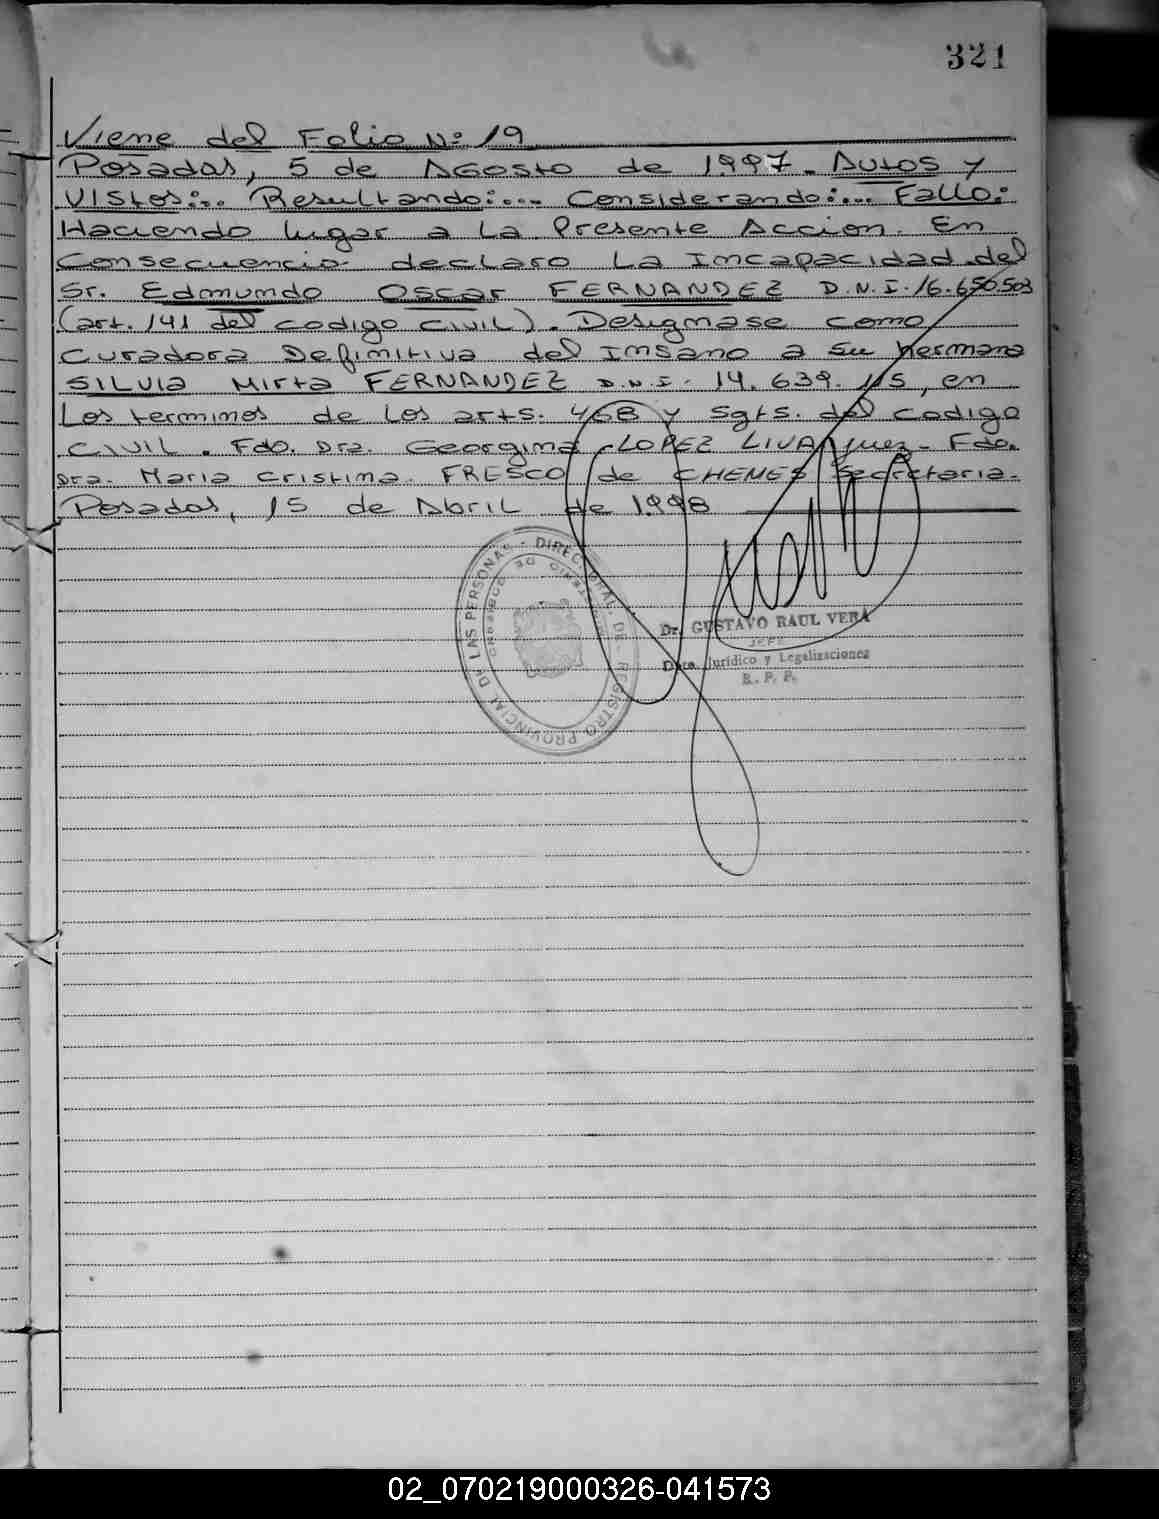 321
Viene del Folio Nº 19
Posadas, 5 de Agosto de 1.997. Autos y
Vistos:... Resultando:.... Considerando:.... Fallo:
Haciendo lugar a La Presente Accion. En
Consecuencia declaro La Incapacidad del
Sr. Edmundo Oscar FERNANDEZ D.N.I. 16.650.503
(art. 141 del codigo CIVIL). Designase como
Curadora Definitiva del Insano a su hermana
SILVIA Mirta FERNANDEZ D.N.I. 14.639.115, en
Los terminos de Los arts. 468 y sgts. del codigo
CIVIL. Fdo. Dra. Georgina LOPEZ LIVA juez. Fdo.
Dra. Maria Cristina FRESCO de CHEMES Secretaria.
Posadas, 15 de Abril de 1.998
DIREC. GRAL. DE REGISTRO PROVINCIAL DE LAS PERSONAS
MINISTERIO DE GOBIERNO
Dr. GUSTAVO RAUL VERA
JEFE
Dpto. Jurídico y Legalizaciones
R. P. P.
02_070219000326-041573